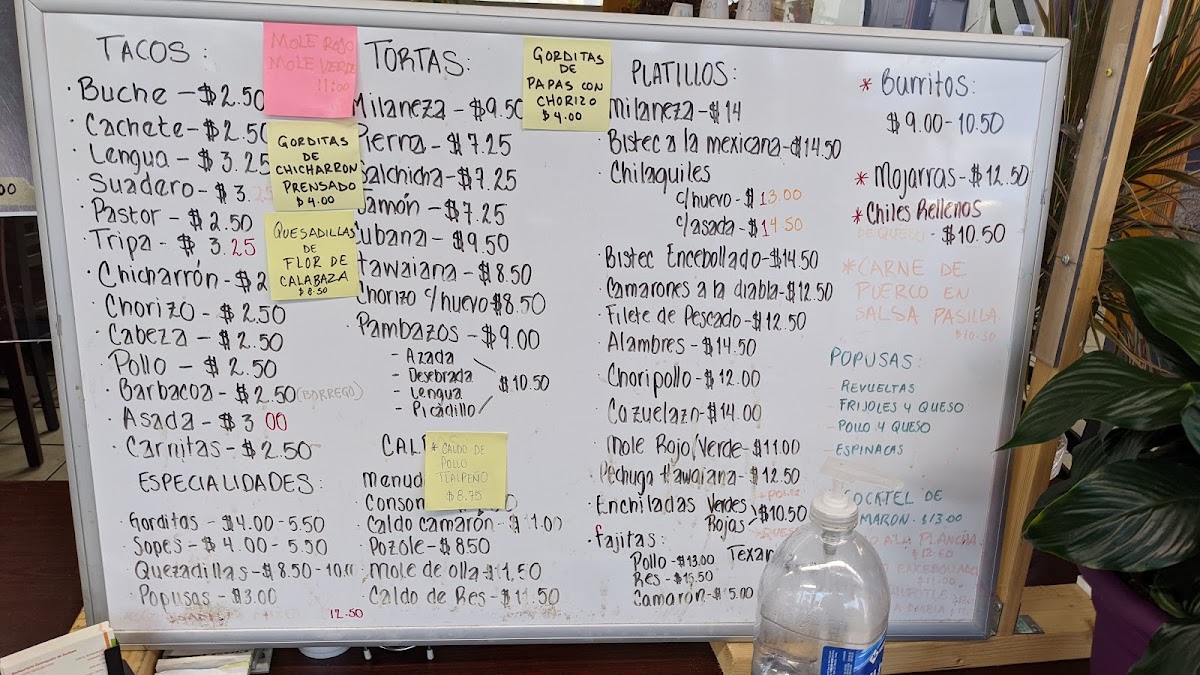 TACOS:
Buche - $2.50
Cachete - $2.50
Lengua - $3.25
Suadero - $3.25
Pastor - $2.50
Tripa - $3.25
Chicharrón - $2
Chorizo - $2.50
Cabeza - $2.50
Pollo - $2.50
Barbacoa - $2.50 (BORREGO)
Asada - $3 00
Carnitas - $2.50
ESPECIALIDADES:
Gorditas - $4.00 - 5.50
Sopes - $4.00 - 5.50
Quezadillas - $8.50 - 10.
Popusas - $3.00
12.50
MOLE ROJO
MOLE VERDE
11:00
GORDITAS
DE
CHICHARRON
PRENSADO
$4.00
QUESADILLAS
DE
FLOR DE
CALABAZA
$8.50
TORTAS:
Milaneza - $9.50
Pierna - $7.25
Salchicha - $7.25
Jamón - $7.25
Cubana - $9.50
Hawaiana - $8.50
Chorizo c/huevo $8.50
Pambazos - $9.00
- Azada
- Desebrada
- Lengua
- Picadillo
$10.50
CAL
Menud
Consom
Caldo Camarón - $11.00
Pozole - $850
Mole de olla $11.50
Caldo de Res - $11.50
* CALDO DE
POLLO
TLALPEÑO
$8.75
GORDITAS
DE
PAPAS CON
CHORIZO
$4.00
PLATILLOS:
Milaneza - $14
Bistec a la mexicana - $14.50
Chilaquiles
c/huevo - $13.00
c/asada - $14.50
Bistec Encebollado - $14.50
Camarones a la diabla - $12.50
Filete de Pescado - $12.50
Alambres - $14.50
Choripollo - $12.00
Cazuelazo - $14.00
Mole Rojo/Verde - $11.00
Pechuga Hawaiana - $12.50
Enchiladas Verdes
Rojas
$10.50
fajitas:
Pollo - $13.00
Res - $15.50
Camarón - $15.00
* Burritos:
$9.00 - 10.50
* Mojarras - $12.50
* Chiles Rellenos
DE QUESO - $10.50
* CARNE DE
PUERCO EN
SALSA PASILLA
$10.50
POPUSAS:
- REVUELTAS
- FRIJOLES Y QUESO
- POLLO Y QUESO
ESPINACAS
COCKTEL DE
AMARON - $13.00
A LA PLANCHA
$12.50
ENCEBOLLADO
$11.00